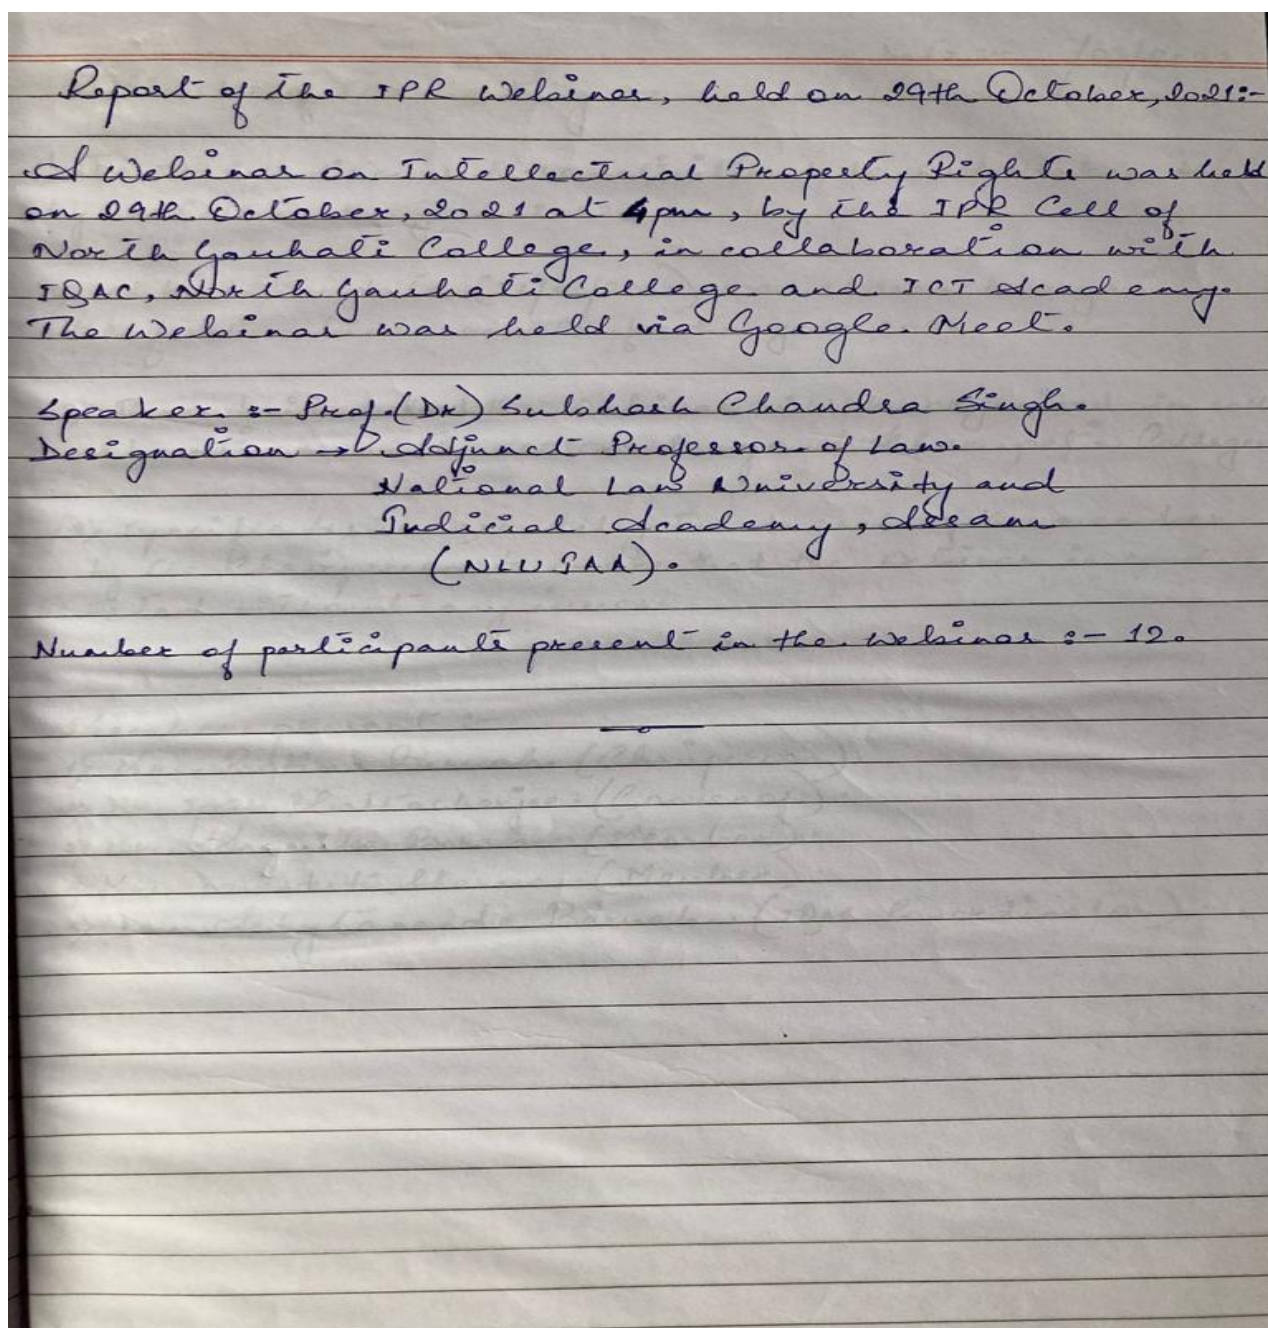 Report of the IPR Webinar, held on 29th October, 2021:-
A Webinar on Intellectual Property Rights was held
on 29th October, 2021 at 4pm, by the IPR Cell of
North Gauhati College, in collaboration with
IQAC, North Gauhati College and ICT Academy.
The Webinar was held via Google Meet.
Speaker :- Prof.(Dr) Subhash Chandra Singh.
Designation → Adjunct Professor of Law.
National Law University and
Judicial Academy, Assam
(NLUJAA).
Number of participants present in the webinar :- 12.